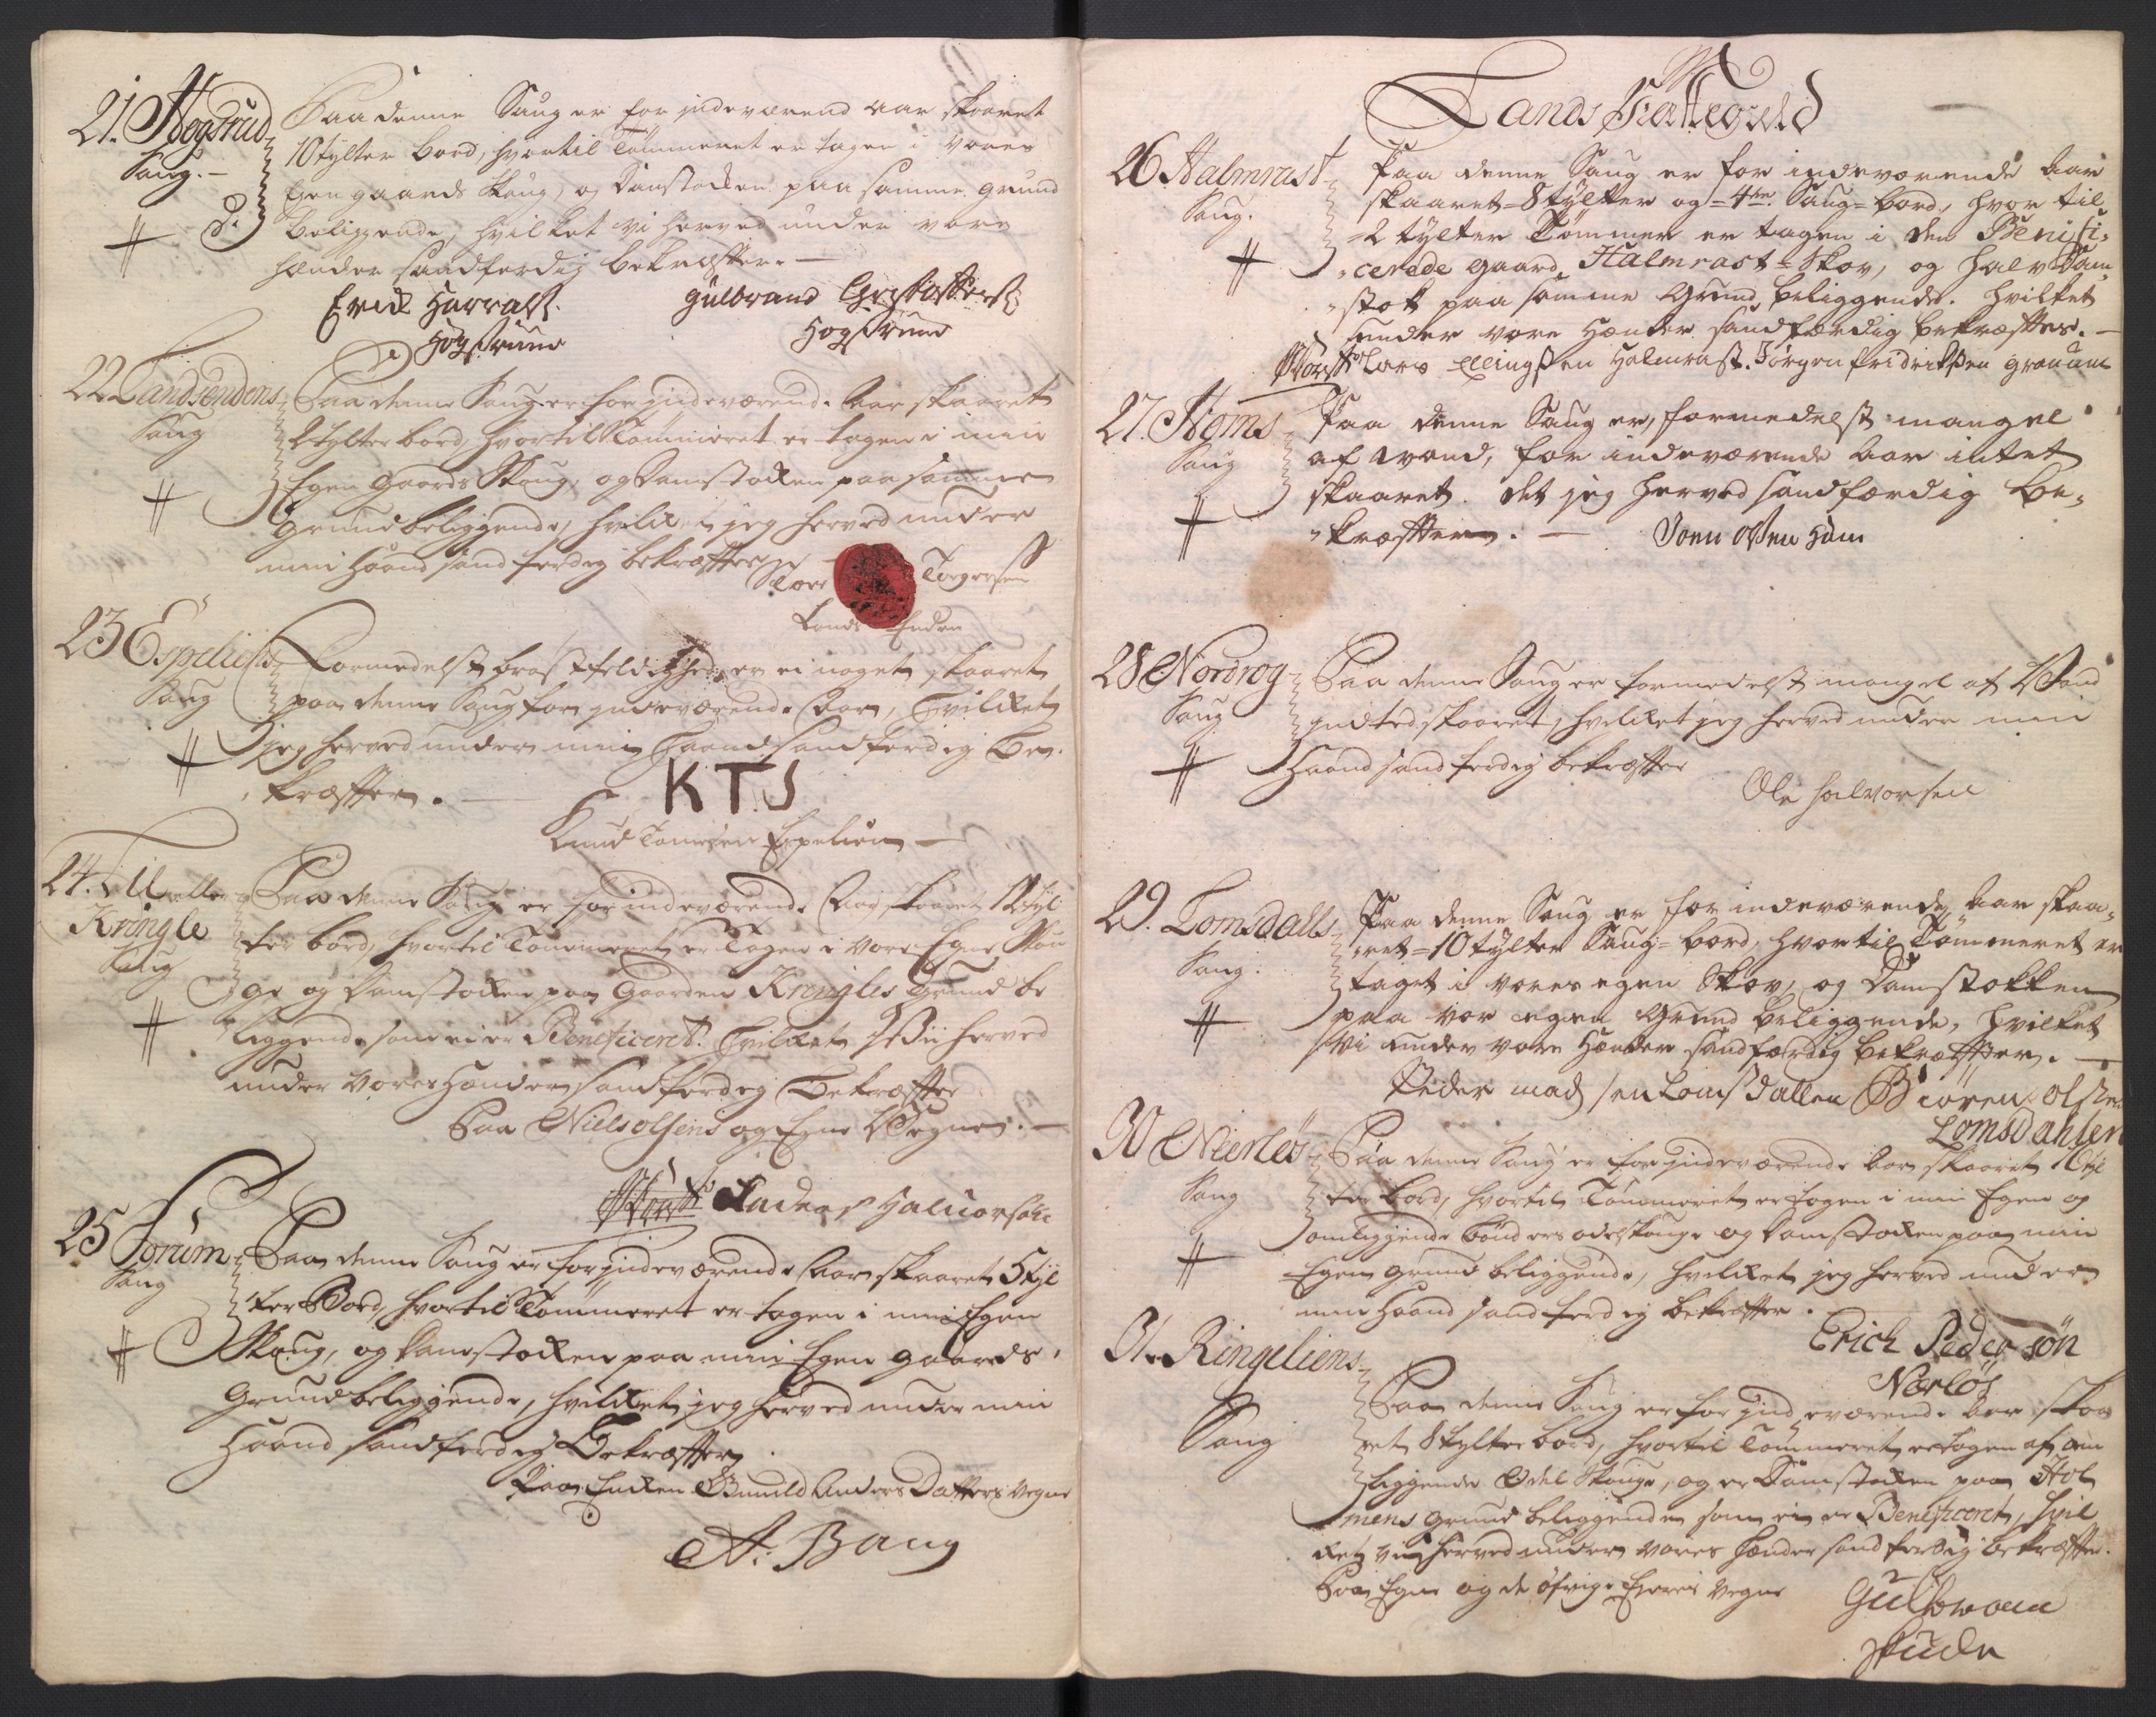 21. Hogsrud
Saug.
Paa denne Saug er for indeværend aar skaaret
10 tylter bord, hvortil Tømmeret er tagen i vores
Egen gaards skoug, og Damstocken paa samme grund
beliggende, hvilket vi herved under vore
hænder sandferdig bekræfter.
Erick Harrals.
Gulbrand Christoffers:
Hogsrund
Hogsrund
22 Landsendens
Saug
Paa denne Saug er for indeværende Aar skaaret
2 tylter bord, hvortil Tømmeret er tagen i min
Egen Gaards Skoug, og Damstocken paa samme
grund beliggende, hvilket jeg herved under
min Haand sandferdig bekræfter
Torgersen
Lands Enden
23 Espeliens
Saug
Formedelst brøstfeldighed er ei noget skaaret
paa denne Saug for indeværende Aar, hvilket
jeg herved under min Haand sandferdig be-
kræfter.
KTS
Knud Tomesen Espelien
24. Ull eller
Kringle
Saug
Paa denne Saug er for indeværende Aar skaaret 12 tyl
ter bord, hvortil Tømmeret er tagen i vore Egne Skou
ge og Damstocken paa Gaarden Kringles Grund be
liggende som ei er Beneficeret. Hvilket Vi herved
under vores hænder sandferdig bekræfter
Paa Niels Olsens og Egne Vegne.
Anders Halvorsen
25 Sørum
Saug
Paa denne Saug er for indeværende Aar skaaret 5 tyl
ter Bord, hvortil Tømmeret er tagen i min Egen
Skoug, og Damstocken paa min Egen gaards
Grund beliggende, hvilket jeg herved under min
Haand sandferdig Bekræfter
Paa Encken Gunild Anders Datters Vegne
A: Bang
Lands Fatteould
26 Halmrast
Saug.
Paa denne Saug er for indeværende Aar
skaaret = 8 tylter og = 4 Saug=bord, hvor til
=2 tylter Tømmer er tagen i den Benifi=
cerede gaard Halmrast=Skov, og halv Dam
stok paa samme Grund beliggende. hvilket
under vore Hænder sandfærdig bekræftes.
Lars Ellingsen Halmrast. Jørgen fridriksen granum
27. Homs
Saug
Paa denne Saug er, formedelst mangel
af vand, for indeværende Aar intet
skaaret. det jeg herved sandfærdig be=
kræfter.
Joen Olsen Hom
28 Nordrog
Saug
Paa denne Saug er formedelst mangel af Vand
indted skaaret, hvilket jeg herved under min
Haand sandferdig bekræfter
Ole Halvorsen
29. Lomsdalls
Saug.
Paa denne Saug er for indeværende Aar skaa=
ret = 10 tylter Saug=bord, hvortil Tømmeret er
taget i vores egen Skov, og Damstokken
paa vor egen Grund beliggende, hvilket
vi under vore Hænder sandfærdig bekræfter.
Peder madsen Lomsdallen Biøren olsen
Lomsdahlen
30 Neerløs
Saug
Paa denne Saug er for indeværende Aar skaaret 10 tyl
ter bord, hvortil Tømmeret er tagen i min Egen og
omliggende bønders odelskouge og Damstocken paa min
Egen grund beliggende, hvilket jeg herved under
min Haand sandferdig bekræfter.
Erich Pedersøn
Nærløs
31. Ringeliens
Saug
Paa denne Saug er for indeværende Aar skaa
ret 8 tylter bord, hvortil Tømmeret er tagen af om
liggende Odel Skouge, og er Damstocken paa Hol
mens grund beliggende som ei er Beneficeret, hvil
ket vi herved under vores hænder sandferdig bekræfter.
Paa Egne og de øfrige Eyeres Vegne